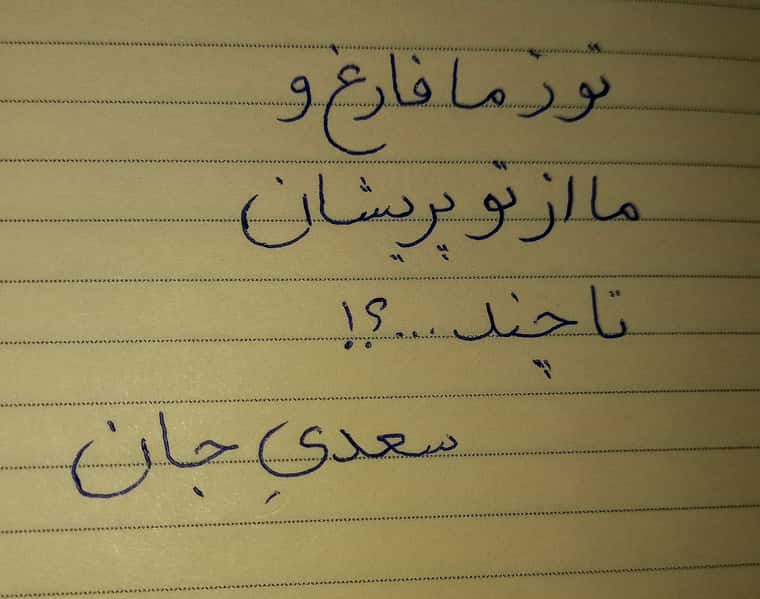 تو ز ما فارغ و
ما از تو پریشان
تا چند ...؟!
سعدیِ جان